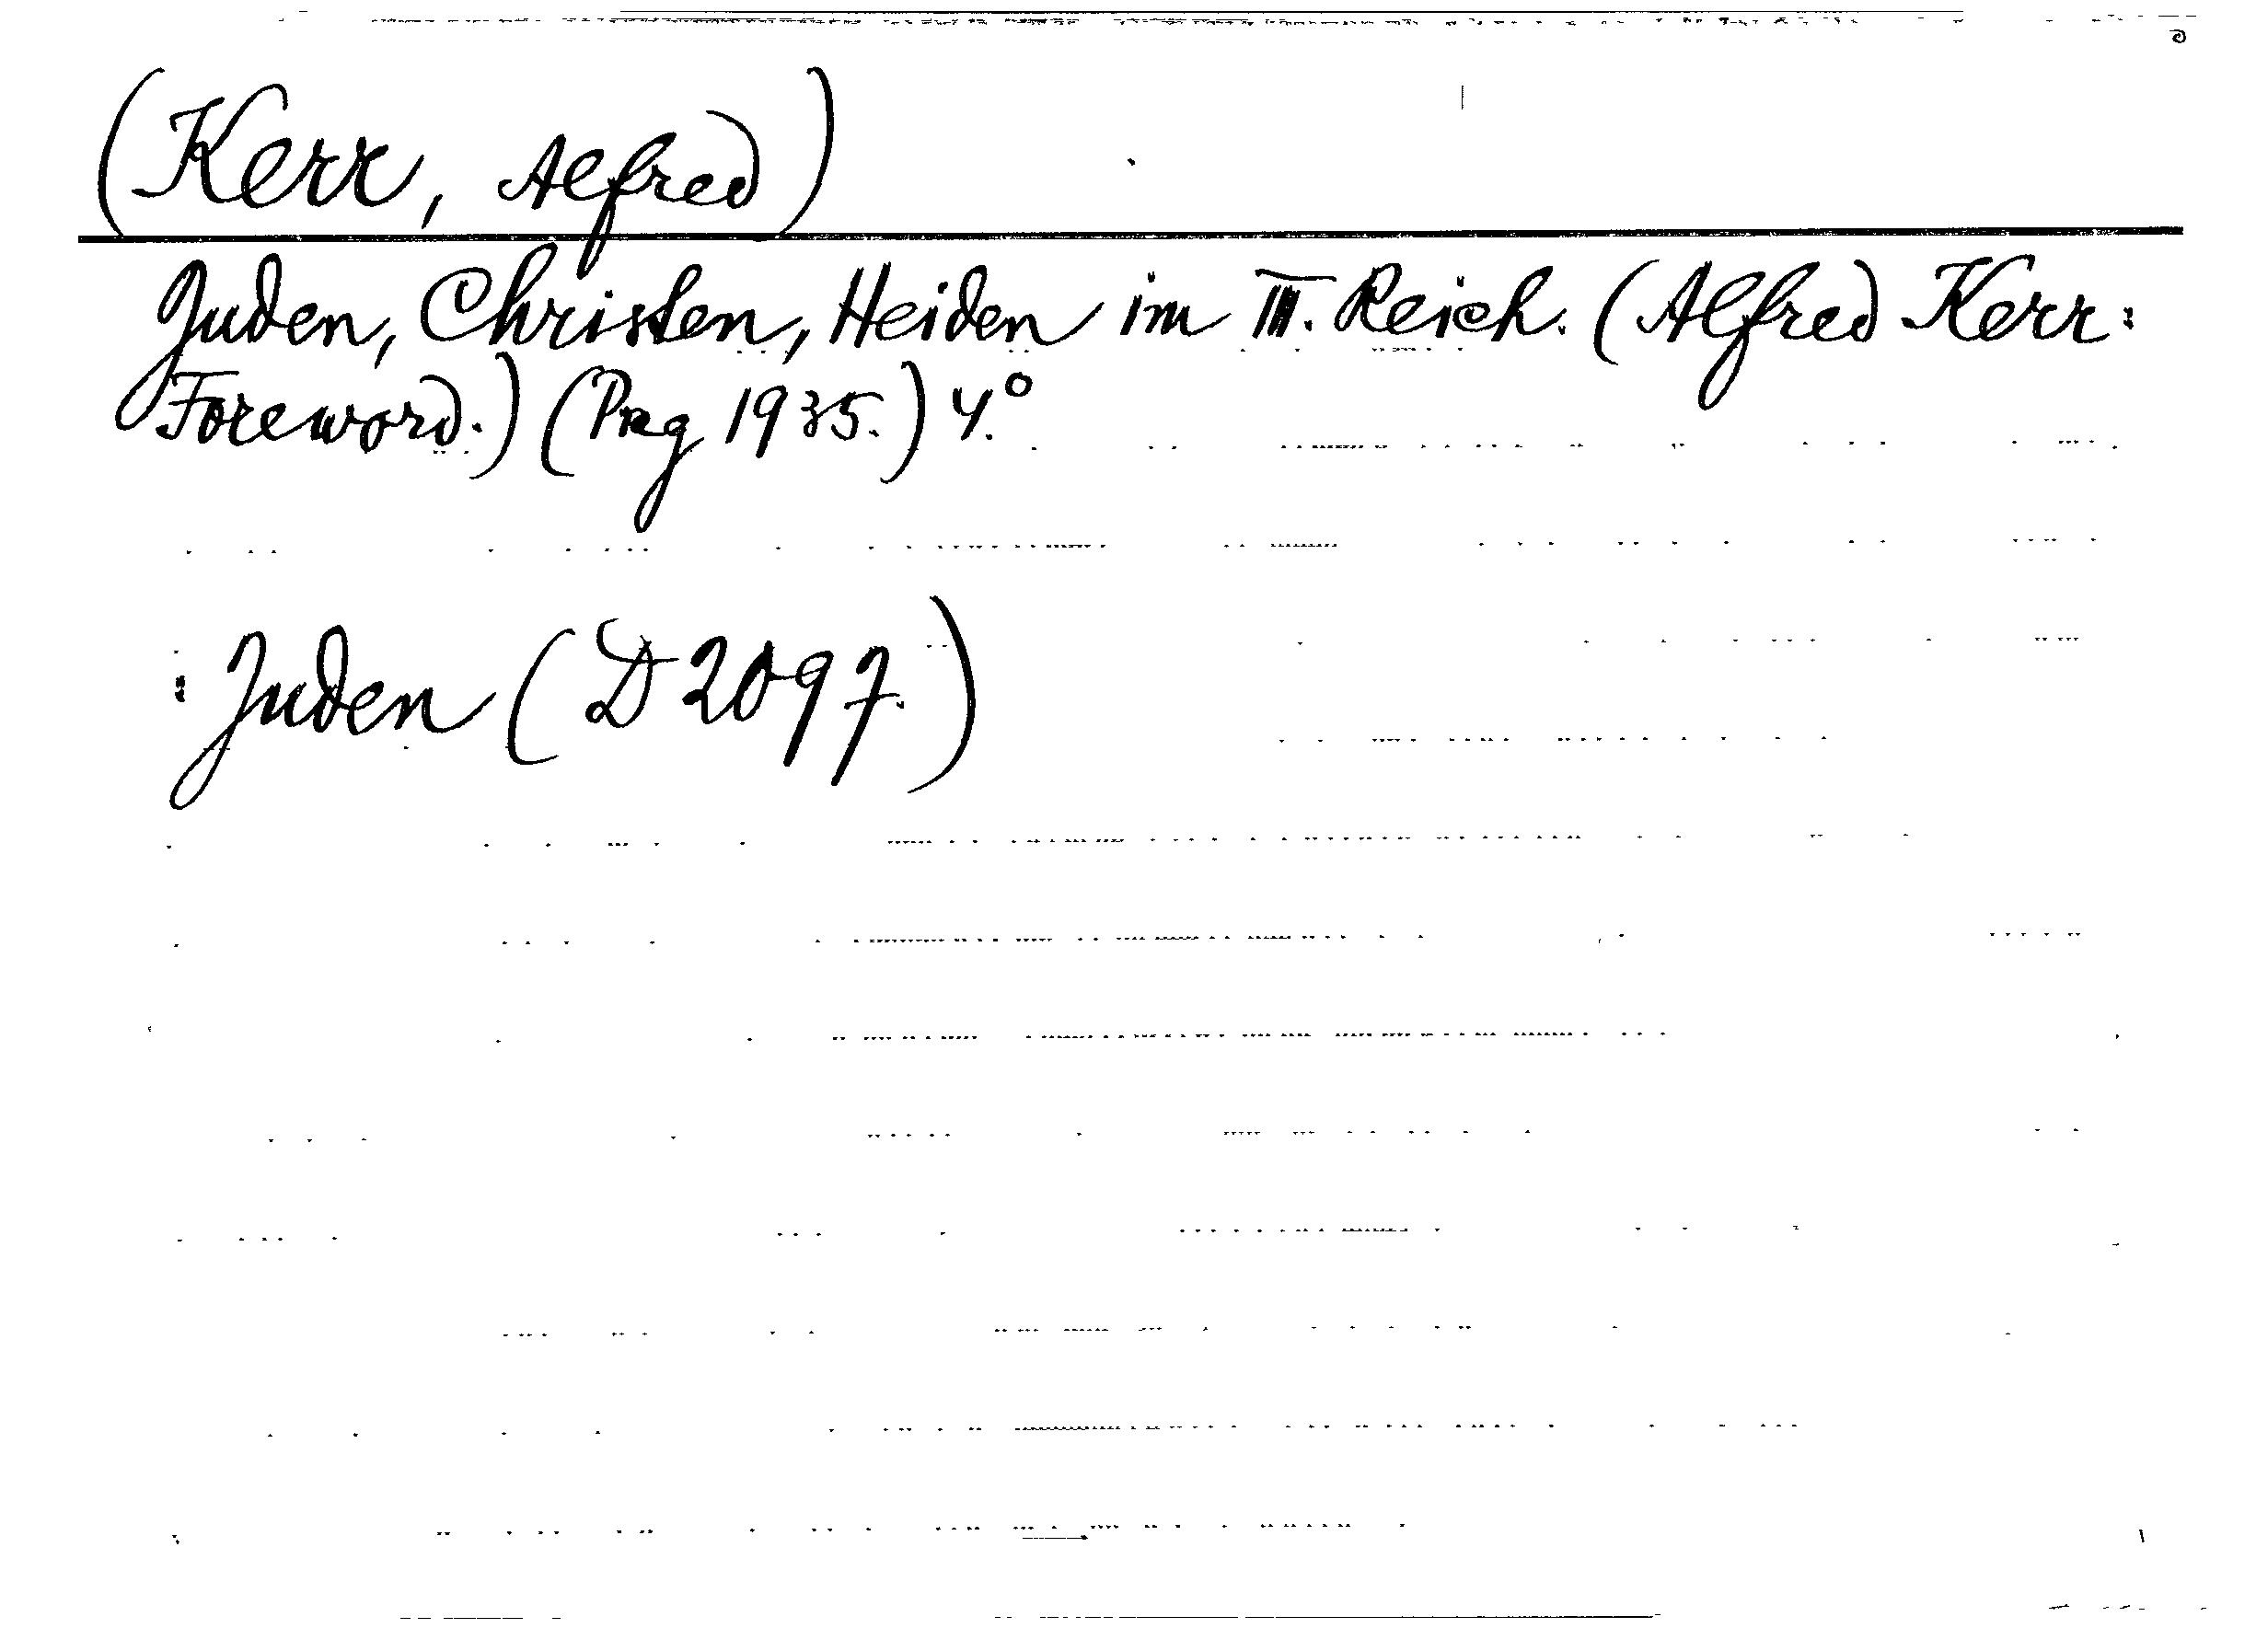 (Kerr, Alfred)
Juden, Christen, Heiden im III. Reich. (Alfred Kerr:
Foreword.) (Prag 1935.) 4.°
: Juden (D 2097.)